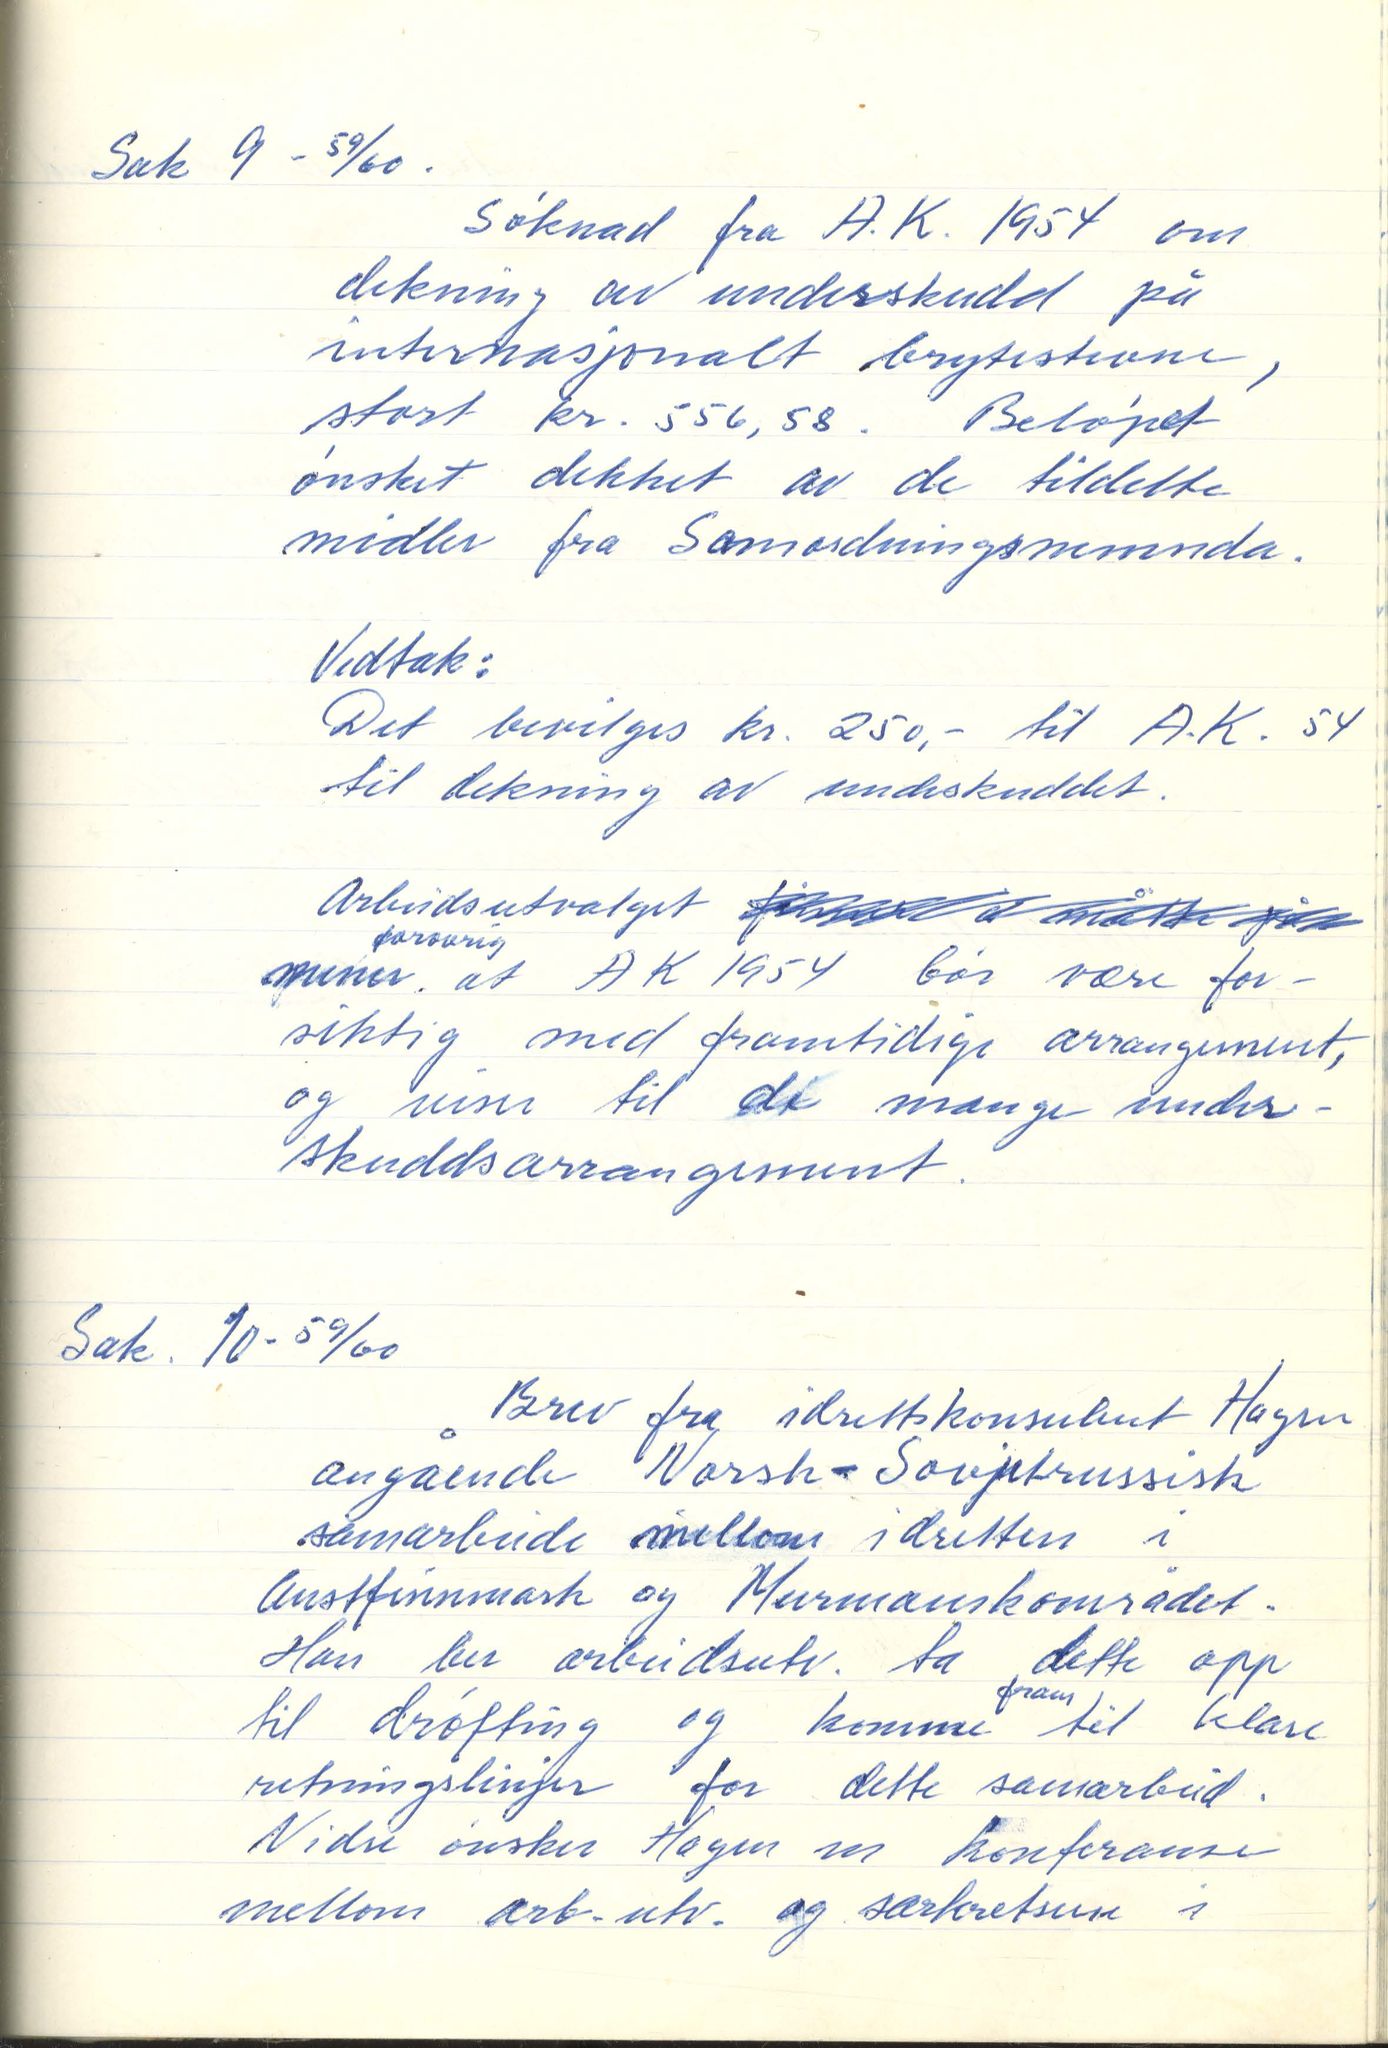 Sak 9 - 59/60.
Søknad fra A.K. 1954 om
dekning av underskudd på
internasjonalt brytestevne,
stort kr. 556,58. Beløpet
ønsket dekket av de tildelte
midler fra Samordningsnemnda.
Vedtak:
Det bevilges kr. 250,- til A.K. 54
til dekning av underskuddet.
Arbeidsutvalget
forøvrig
mener at AK 1954 bør være for-
siktig med framtidige arrangement,
og viser til de mange under-
skuddsarrangement.
Sak. 10 - 59/60
Brev fra idrettskonsulent Hagen
angående Norsk-Sovjetrussisk
samarbeide mellom idretten i
Austfinnmark og Murmanskområdet.
Han ber arbeidsutv. ta dette opp
til drøfting og komme fram til klare
retningslinjer for dette samarbeid.
Vidre ønsker Hagen en konferanse
mellom arb-utv. og særkretsene i